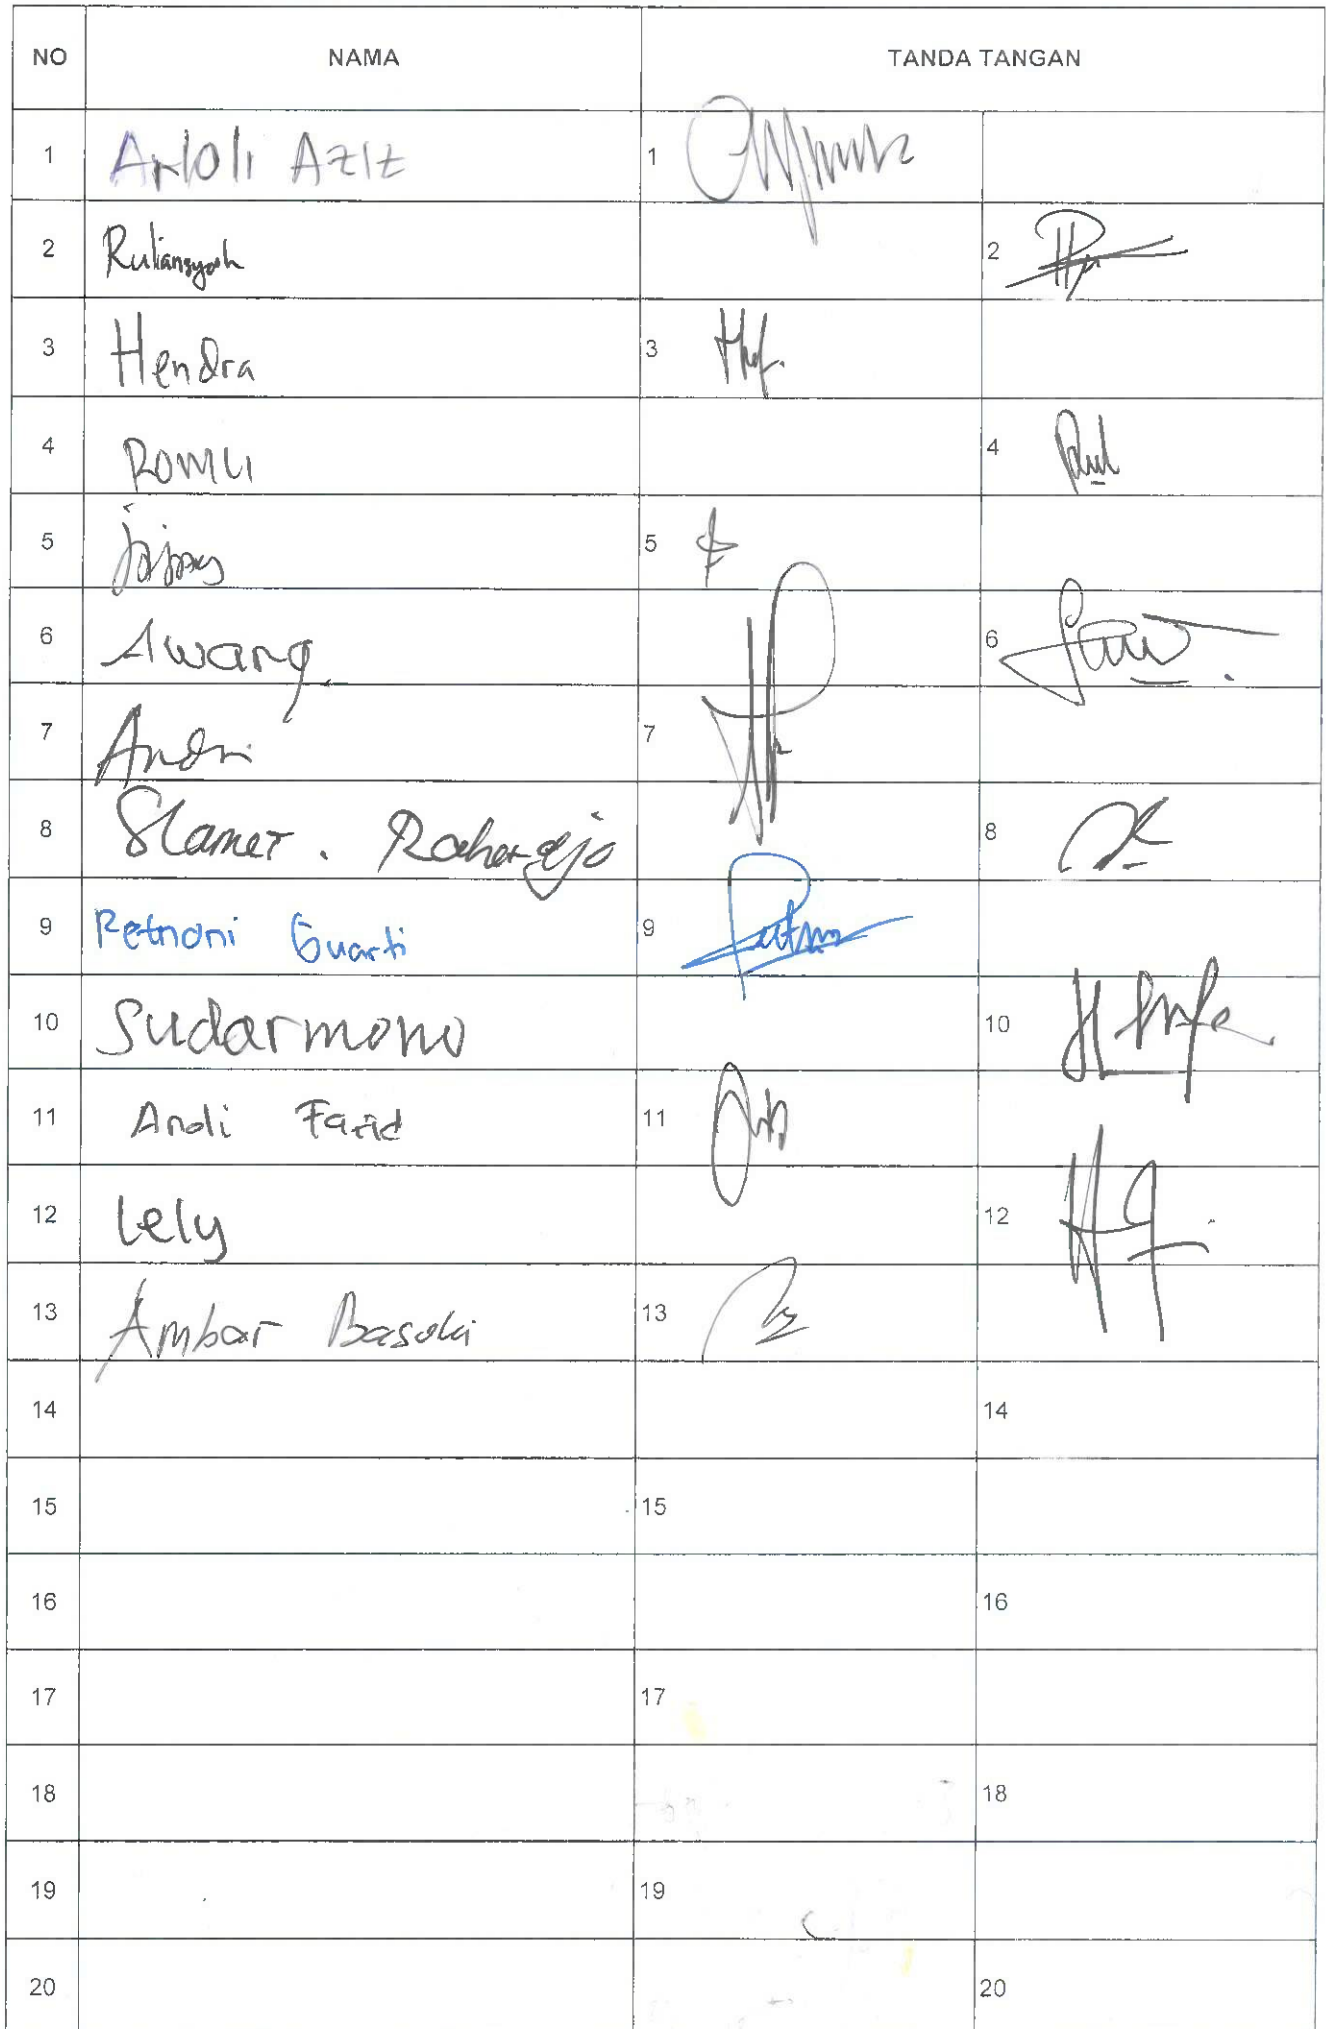 NO NAMA TANDA TANGAN
1 Aziz 1
2 Ruliansyah 2
3 Hendra 3
4 ROMLI 4
5 5
6 Awang 6
7 Andri 7
8 Slamet . Raharjo 8
9 Retnoni Guarti 9
10 Sudarmono 10
11 Andi Farid 11
12 Lely 12
13 Ambar Basuki 13
14 14
15 15
16 16
17 17
18 18
19 19
20 20